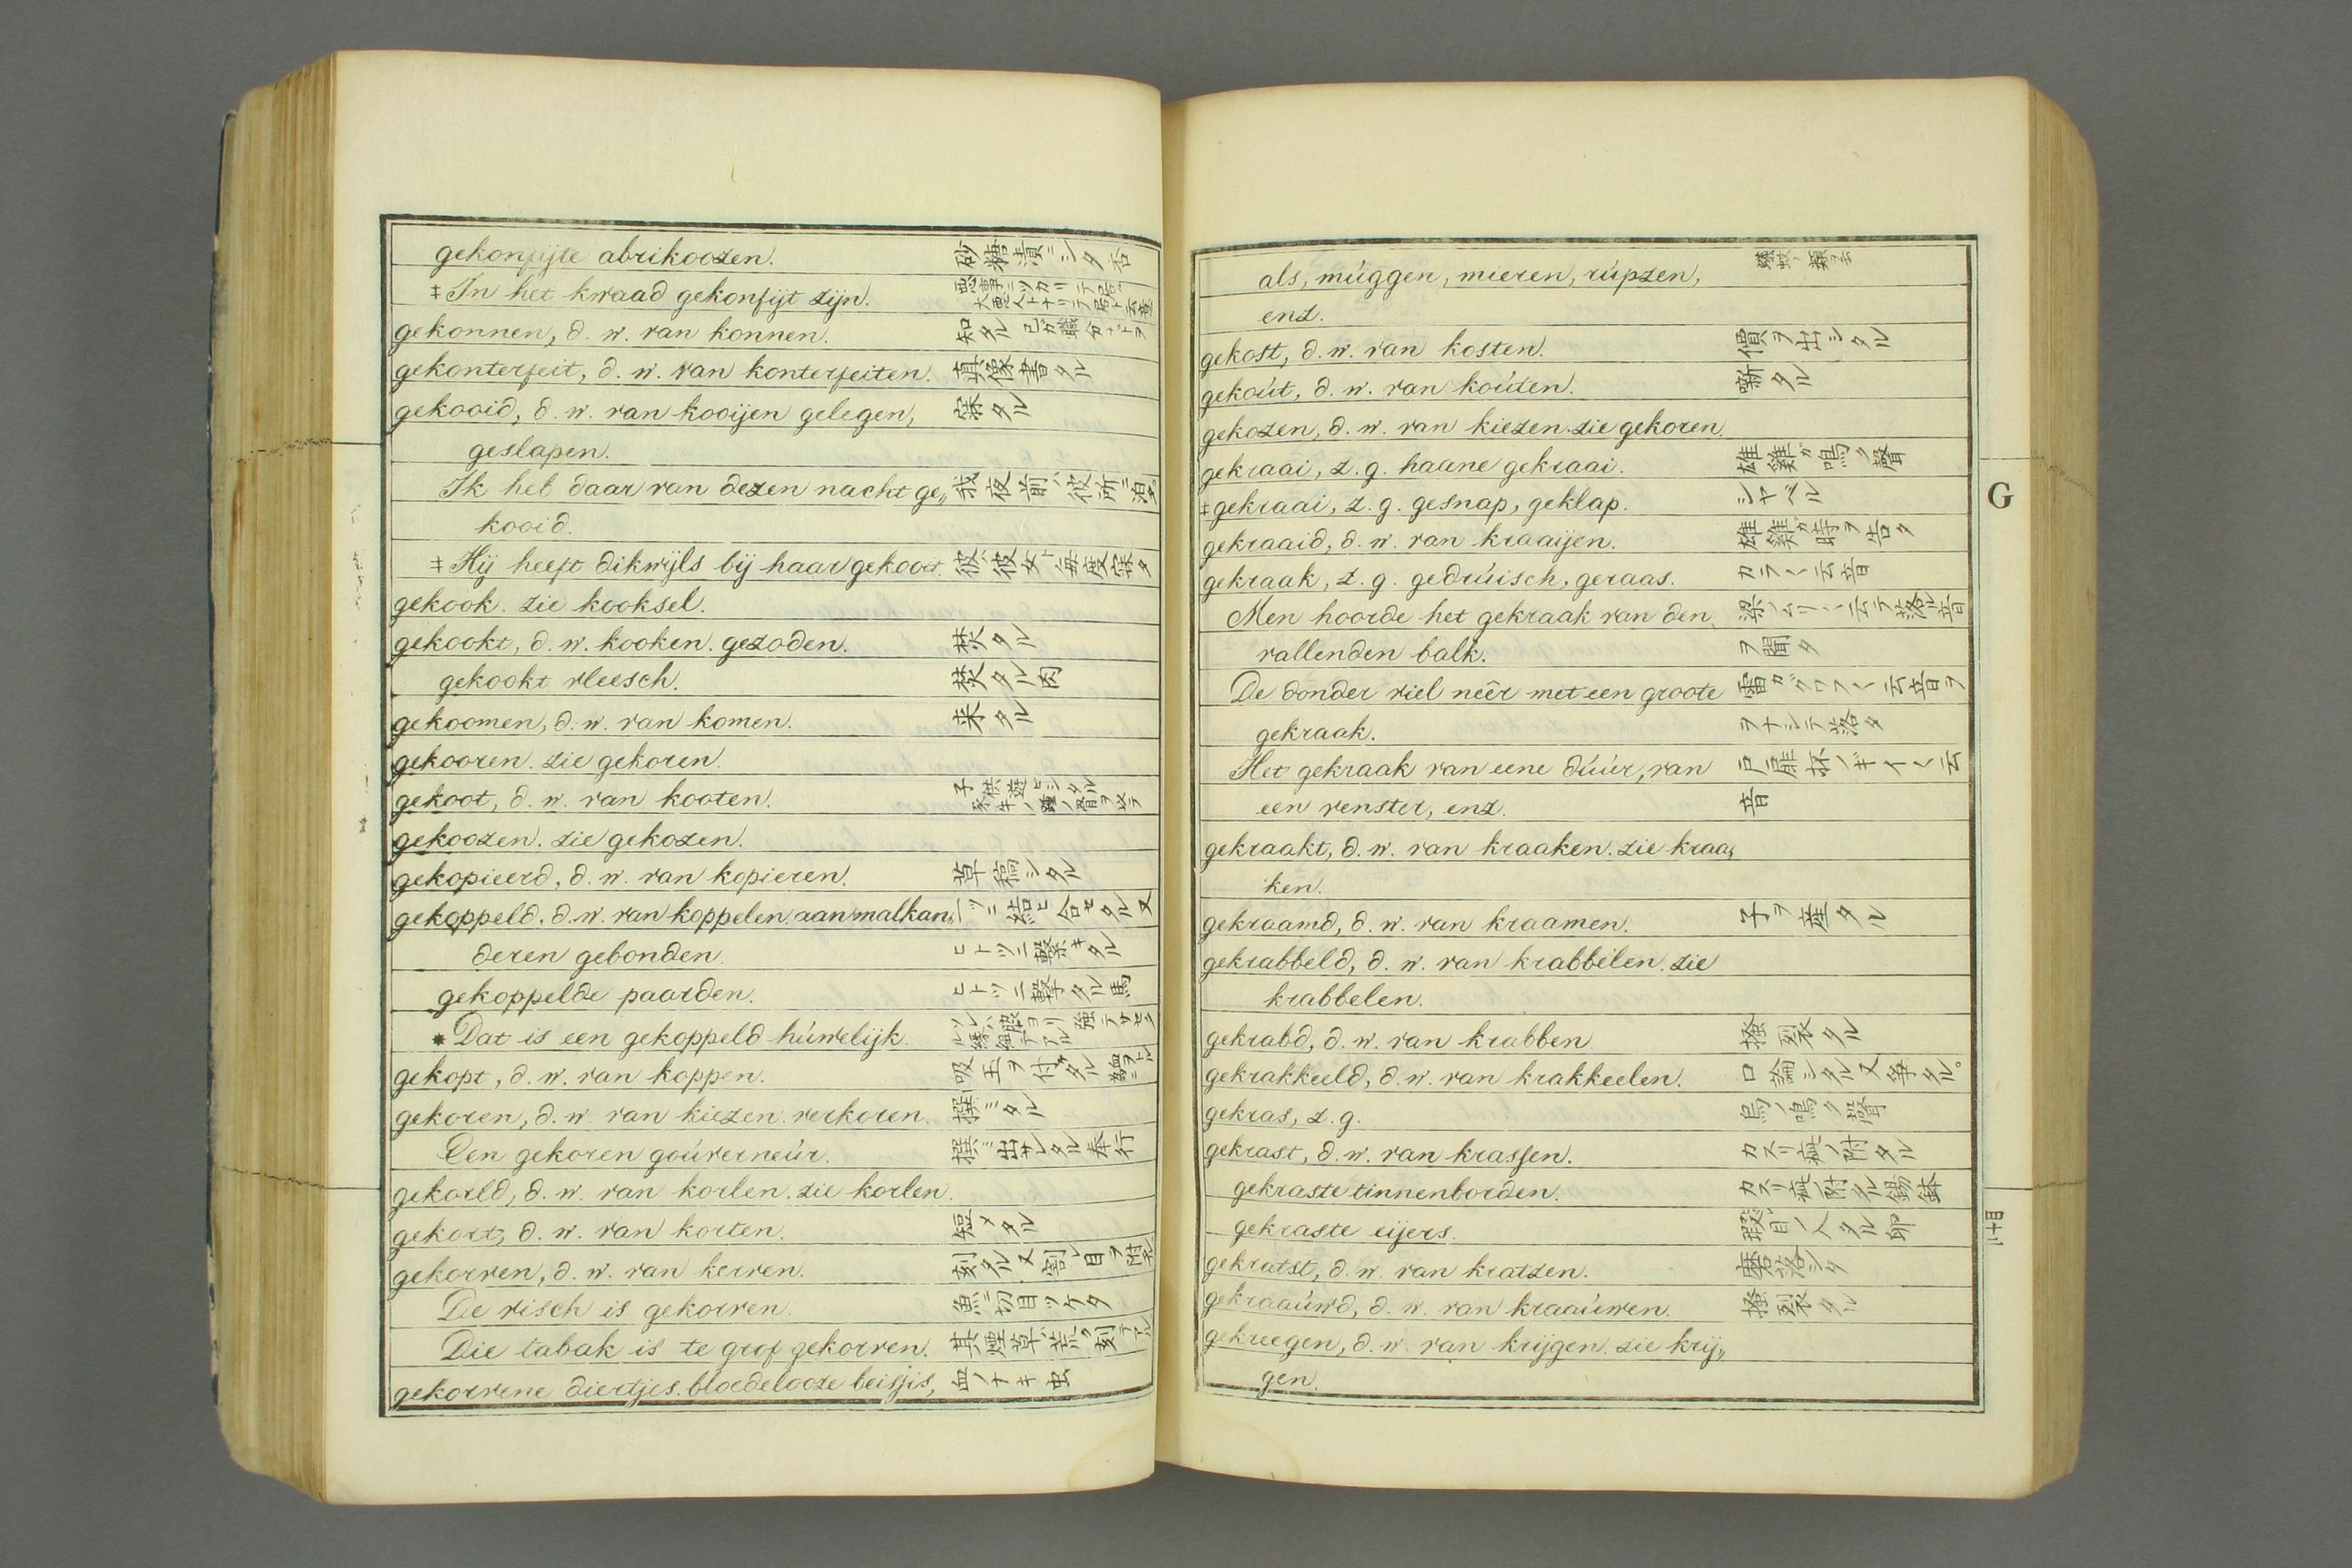 gekonfijte abrikoozen. 砂糖漬ニシタ杏
‡In het kwaad gekonfijt zijn.
gekonnen, d. w. van konnen. 知タル
gekonterfeit, d. w. van konterfeiten. 真像書タル
gekooid, d. w. van kooijen gelegen, 寐タル
geslapen.
Ik heb daar van dezen nacht ge„ 我夜前ハ彼所ニ泊タ
kooid.
‡Hij heeft dikwijls bij haar gekooit. 彼ハ彼女ト毎度寐タ
gekook. zie kooksel.
gekookt, d. w. kooken. gezoden. 焚タル
gekookt vleesch. 焚タル肉
gekoomen, d. w. van komen. 来タル
gekooren. zie gekoren.
gekoot, d. w. van kooten.
gekoozen. zie gekozen.
gekopieerd, d. w. van kopieren. 草稿シタル
gekoppeld. d. w. van koppelen. aan malkan„ 一ツニ結ヒ合セタル又
deren gebonden. ヒトツニ繋キタル
gekoppelde paarden. ヒトツニ繋タル馬
*Dat is een gekoppeld húwelijk.
gekopt, d. w. van koppen. 吸玉ヲ付タル
gekoren, d. w. van kiezen. verkoren. 撰ミタル
Een gekoren goúverneúr. 撰ミ出サレタル奉行
gekorld, d. w. van korlen. zie korlen.
gekort, d. w. van korten. 短メタル
gekorven, d. w. van kerven. 刻タル又割レ目ヲ附
De visch is gekorven. 魚ニ切目ツケタ
Die tabak is te grof gekorven. 其煙草ハ荒ク刻テアル
gekorvene diertjes. bloedelooze beisjis, 血ノナキ虫
als, múggen, mieren, rúpzen,
enz.
gekost, d. w. van kosten. 價ヲ出シタル
gekoút, d. w. van koúten. 噺タル
gekozen, d. w. van kiezen. zie gekoren.
gekraai, z. g. haane gekraai. 雄雞ガ鳴ク聲
‡gekraai, z. g. gesnap, geklap. シャベル
gekraaid, d. w. van kraaijen. 雄雞ガ時ヲ告タ
gekraak, z. g. gedrúisch, geraas.
Men hoorde het gekraak van den
vallenden balk. ヲ聞タ
De donder viel neêr met een groote
gekraak. ヲナシテ落タ
Het gekraak van eene dúúr, van
een venster, enz. 音
gekraakt, d. w. van kraaken. zie kraa„
ken.
gekraamd, d. w. van kraamen. 子ヲ産タル
gekrabbeld, d. w. van krabbelen. zie
krabbelen.
gekrabd, d. w. van krabben. 掻裂タル
gekrakkeeld, d. w. van krakkeelen. 口論シタル又爭タル。
gekras, z. g. 烏ノ鳴ク聲
gekrast, d. w. van krassen. カスリ疵ノ附タル
gekraste tinnenborden. カスリ疵ノ附タル錫鉢
gekraste eijers. 瑕目ノ入タル卵
gekratst, d. w. van kratzen. 磨落シタ
gekraaúwd, d. w. van kraaúwen. 掻裂タル
gekreegen, d. w. van krijgen. zie krij„
gen.
G